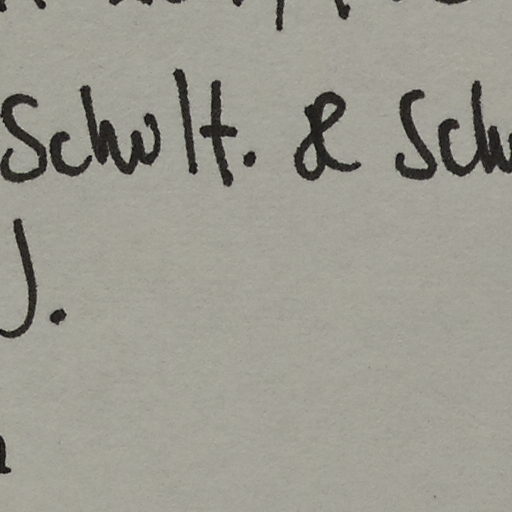 Schult. & Sch
J.